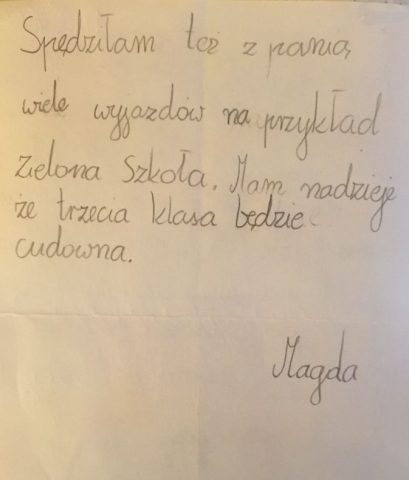 Spędziłam też z panią,
wiele wyjazdów na przykład
Zielona Szkoła. Mam nadzieję
że trzecia klasa będzie
cudowna.
Magda